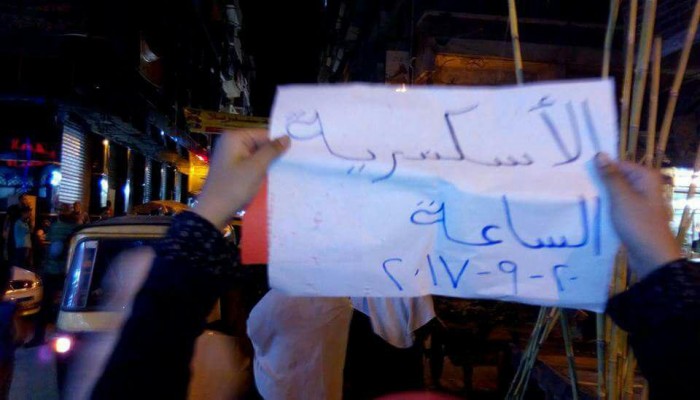 الأسكندرية
الساعة
٢٠١٧-٩-٢٠